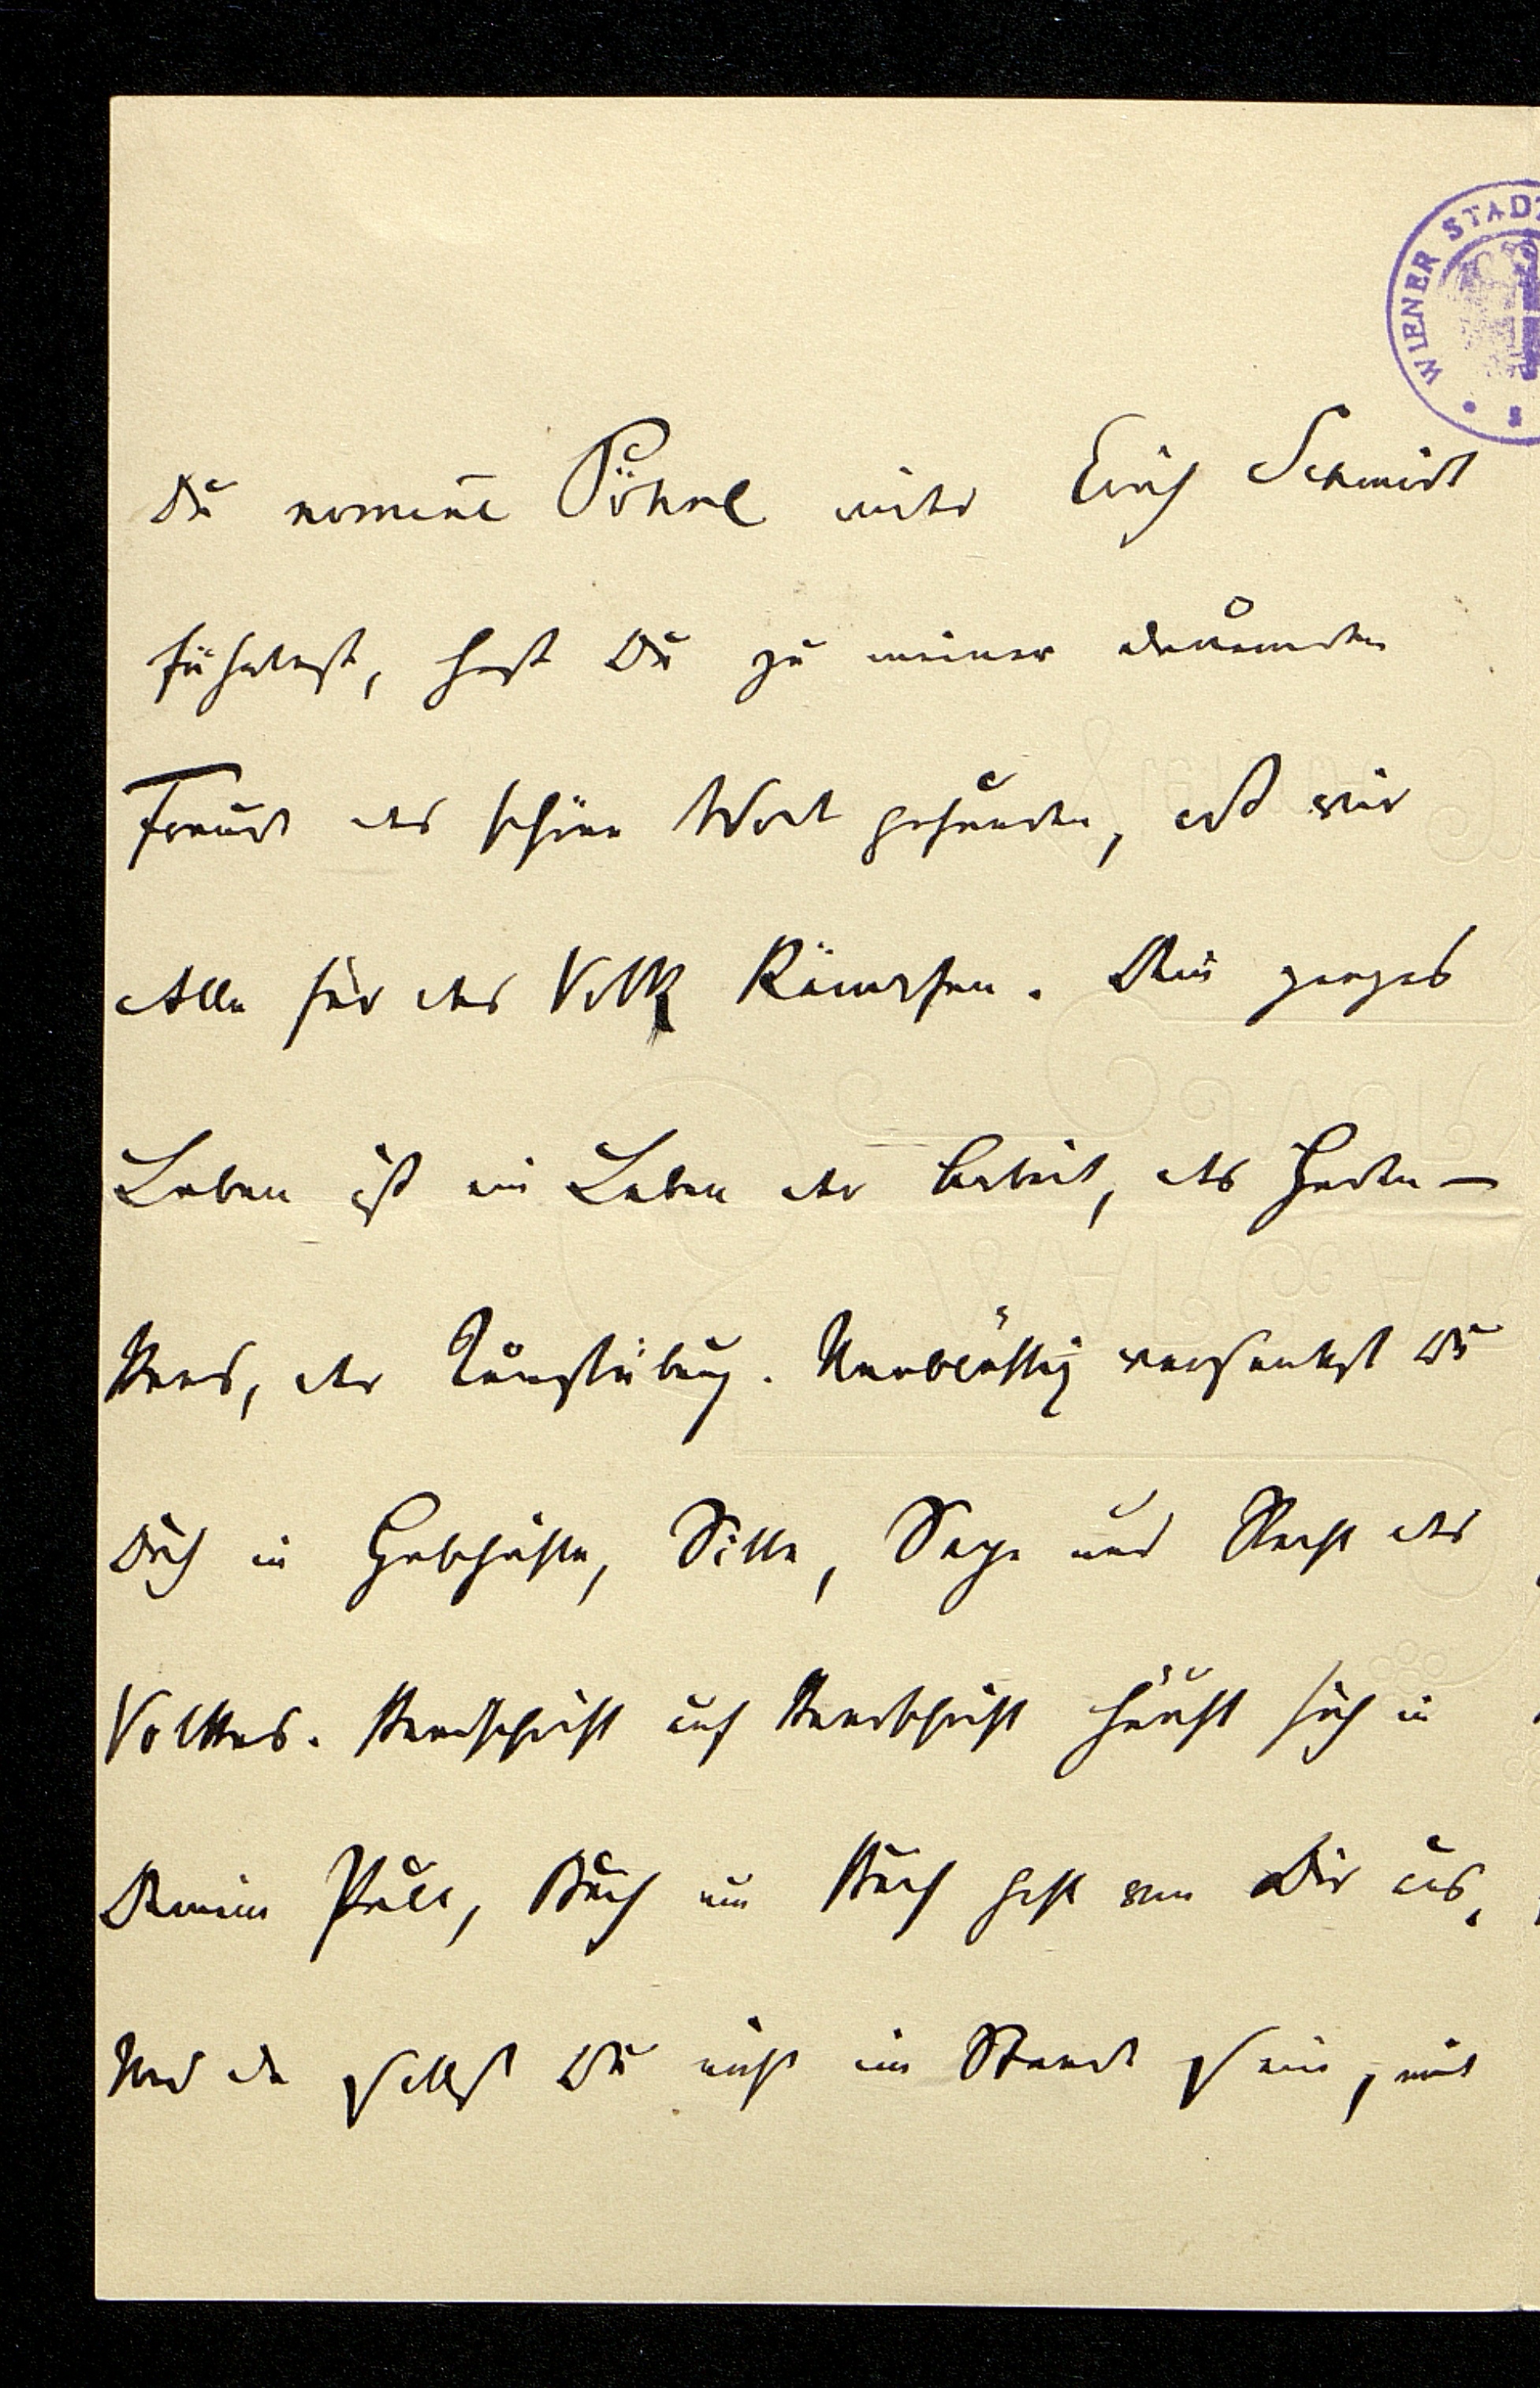 WIENER STADT
Du nomine Pöhnl wider Erich Schmidt
führtest, hast Du zu meiner
Freude das schöne Wort gefunden, daß wir
Alle für das Volk kämpfen. Dein ganzes
Leben ist ein Leben der Arbeit, des Geden-
kens, der Kunstübung. Unabläßig versenkst Du
Dich in Geschichte, Sitte, Sage und Recht des
Volkes. Handschrift auf Handschrift häuft sich in
Deinem Pulte, Buch um Buch geht von Dir aus,
Und da solltest Du nicht im Stande sein, mit